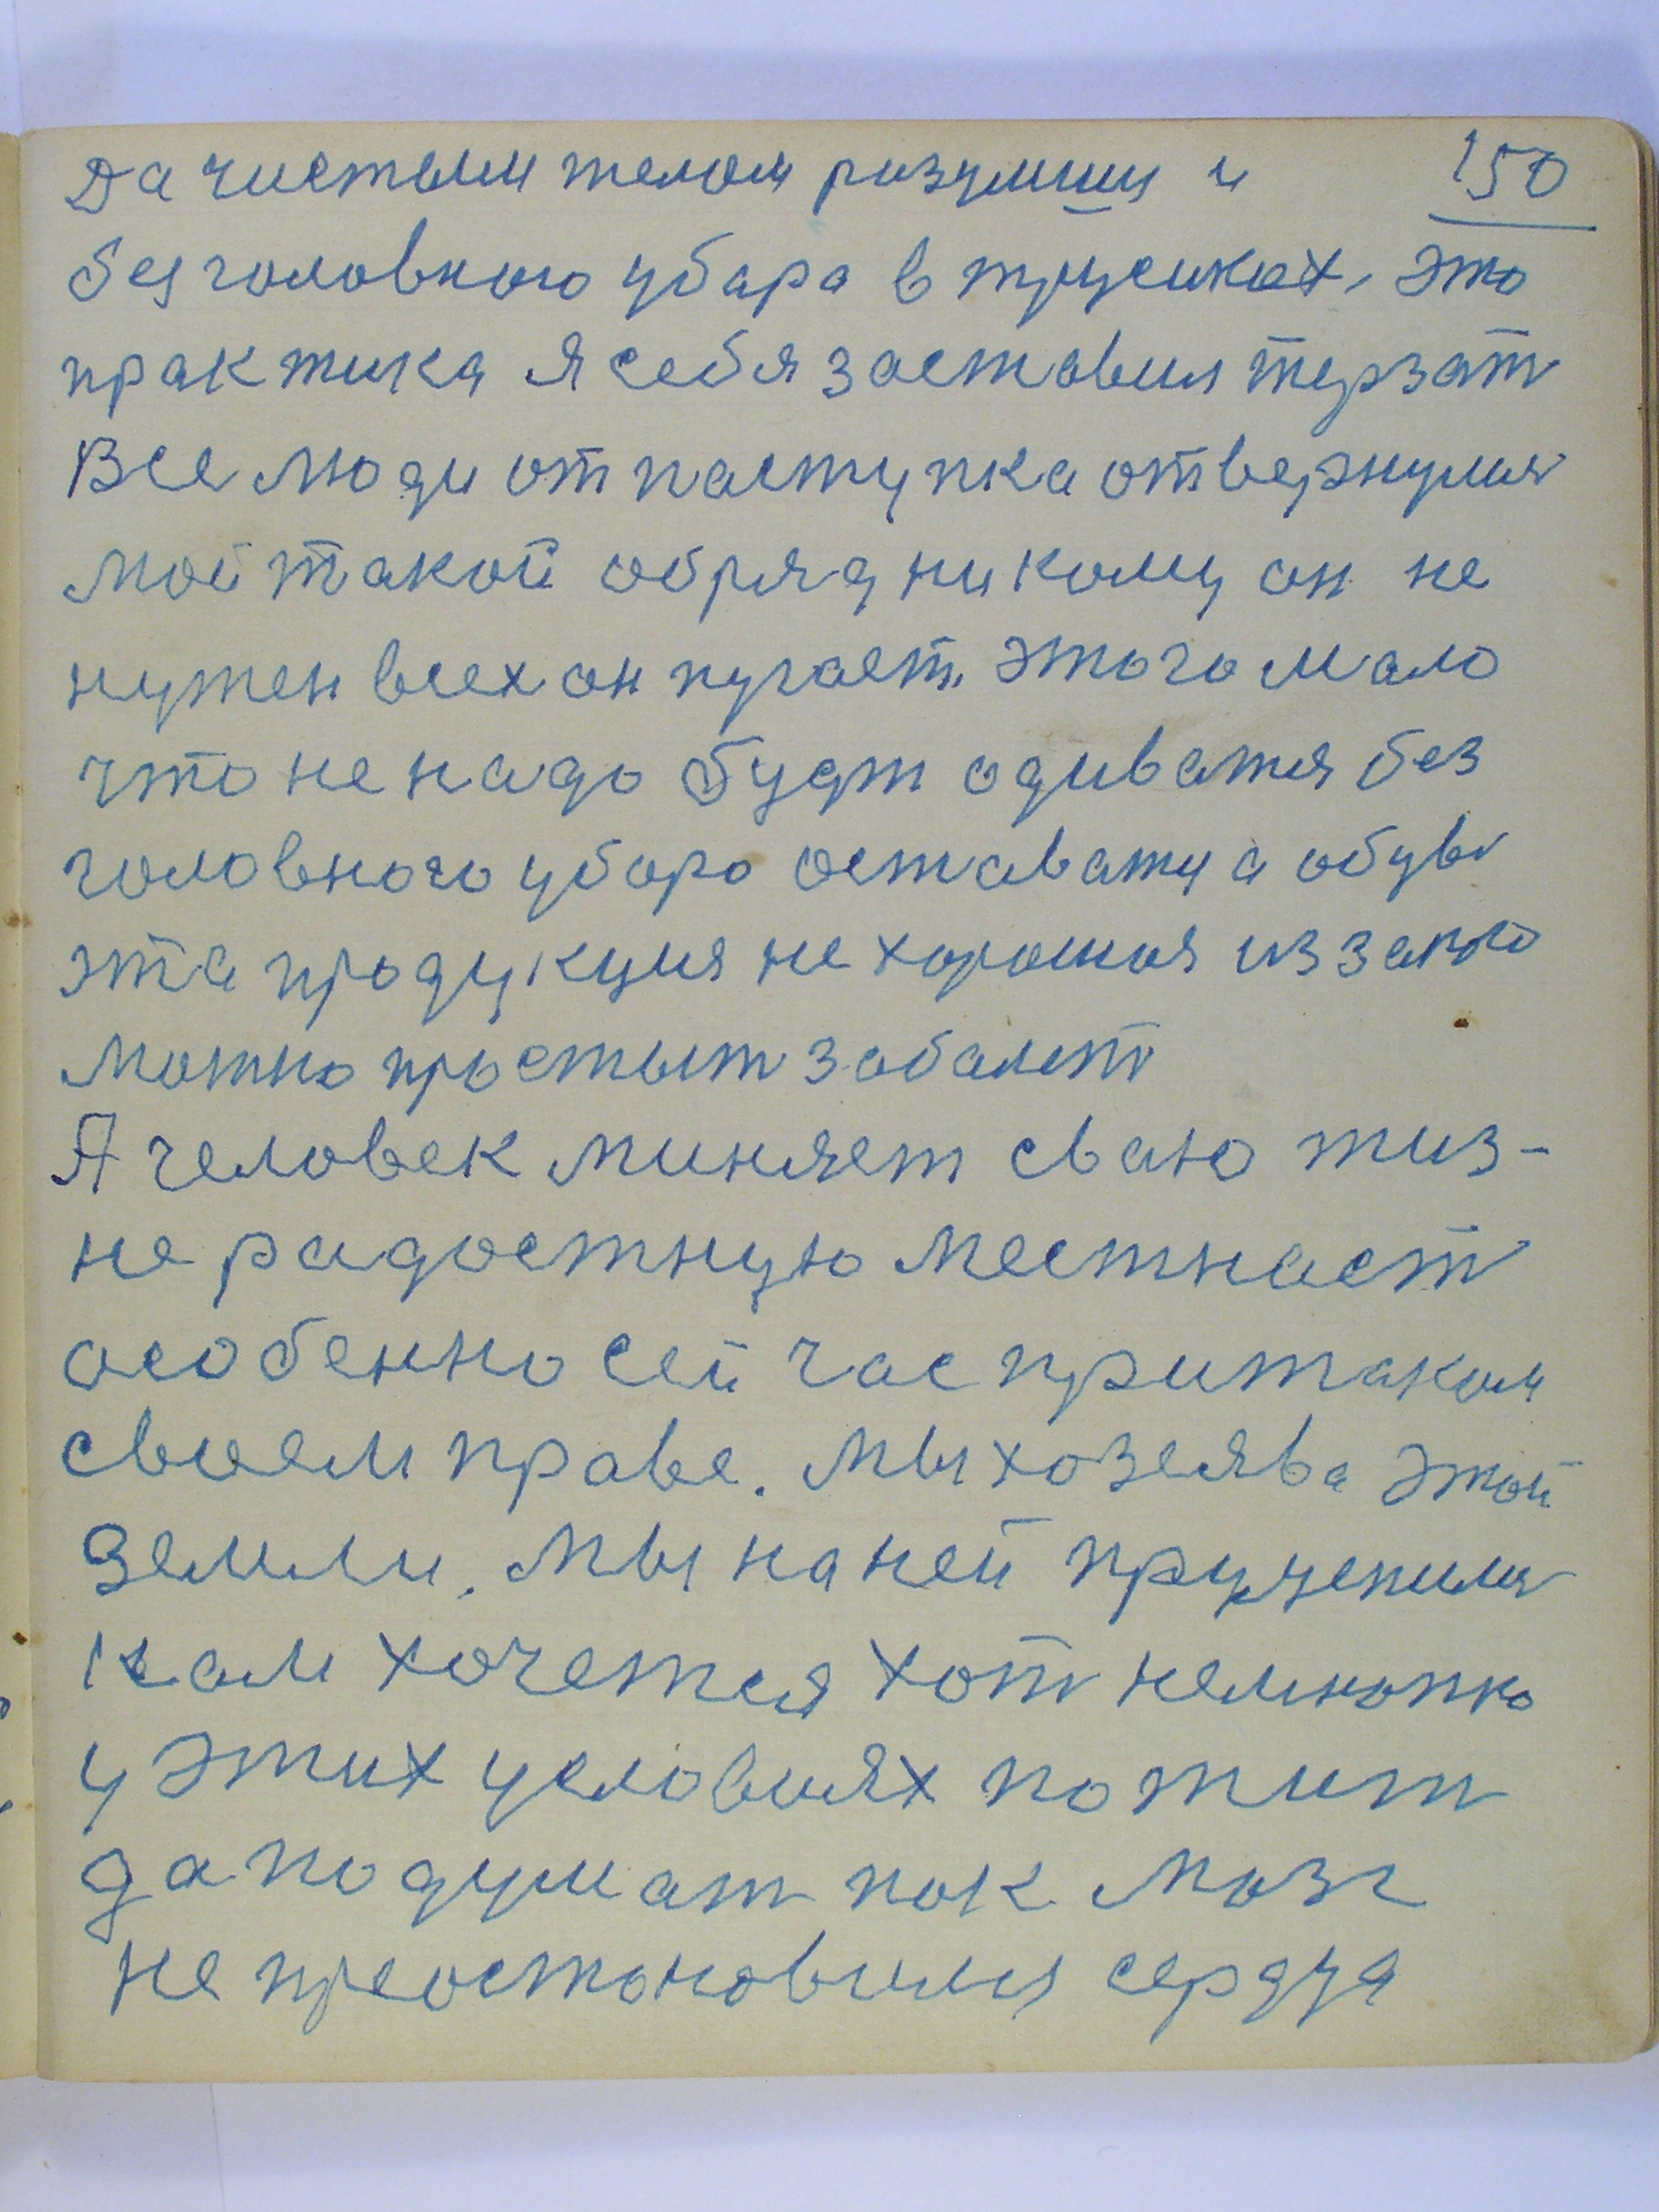 Да чистым телом разумши и 150
без головного убара в трусиках, это
практика я себя заставил терзат
Все люди от паступка отвернулис
мой такой обряд никому он не
нужен всех он пугает. этого мало
что не надо будт одиватся без
головного убора оставатц а обувь
эта продукция не хорошая из за кто
можно простыт заболет
А человек миняет сваю жиз-
не радостную местнаст
особенно сей час при таком
своем праве. Мы хозеява этой
Земли. Мы на ней прицепилис
нам хочется хот немношко
у этих условиях пожит
да подумат пок мозг
не преостоновился сердца